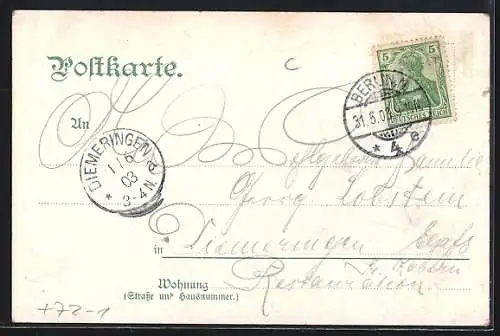 Postkarte.
5
DEUTSCHES REICH
BERLIN
31.5.0
* 4 e
An
DIEMERINGEN
1 6
03
* 3-4 N.
Familie
Georg
in Diemeringen
Wohnung
(Straße und Hausnummer.)
Restauration
+72-1